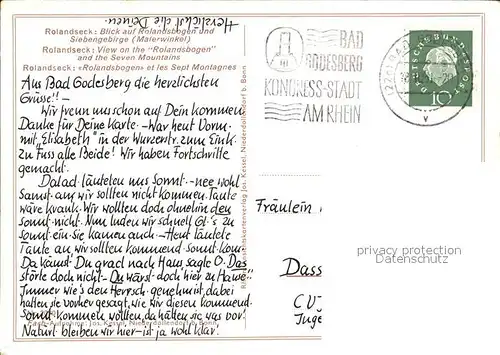 Herzlichst die Deinen
Rolandseck: Blick auf Rolandsbogen und
Siebengebirge (Malerwinkel)
Rolandseck: View on the "Rolandsbogen"
and the Seven Mountains
Rolandseck: «Rolandsbogen» et les Sept Montagnes
BAD
GODESBERG
KONGRESS-STADT
AM RHEIN
DEUTSCHE BUNDESPOST
10
Aus Bad Godesberg die herzlichsten
Grüsse!! –
Wir freun uns schon auf Dein kommen
Danke für Deine Karte. – War heut Vorm.
mit „Elisabeth" in der Wurzerstr. zum Eink.
zu Fuss alle Beide! Wir haben Fortschritte
gemacht.
läuteten uns Sonnt. – nee wohl
Samst. an, wir sollten nicht kommen. Tante
wäre krank. Wir wollten doch ohnehin den
Sonnt. nicht. Nun luden wir schnell Gl.'s zu
Sonnt. ein, sie kamen auch. – Heut läutete
Tante an wir sollten kommend. Sonnt. kom.
Da kämst Du grad nach Haus sagte O. Das
störte doch nicht – Du wärst doch hier zu Hause!"
Immer wie's den Herrsch. genehm ist, dabei
hatten sie vorher gesagt, wie wir diesen kommend.
Sonnt. kommen wollten, da hätten sie was vor!
Natürl. bleiben wir hier – ist ja wohl klar!
Fräulein
Dass
CV-
Juge
privacy protection
Datenschutz
Ansichtskartenverlag Jos. Kessel, Niederdollendorf b. Bonn
Aufnahme: Jos. Kessel, Niederdollendorf b. Bonn